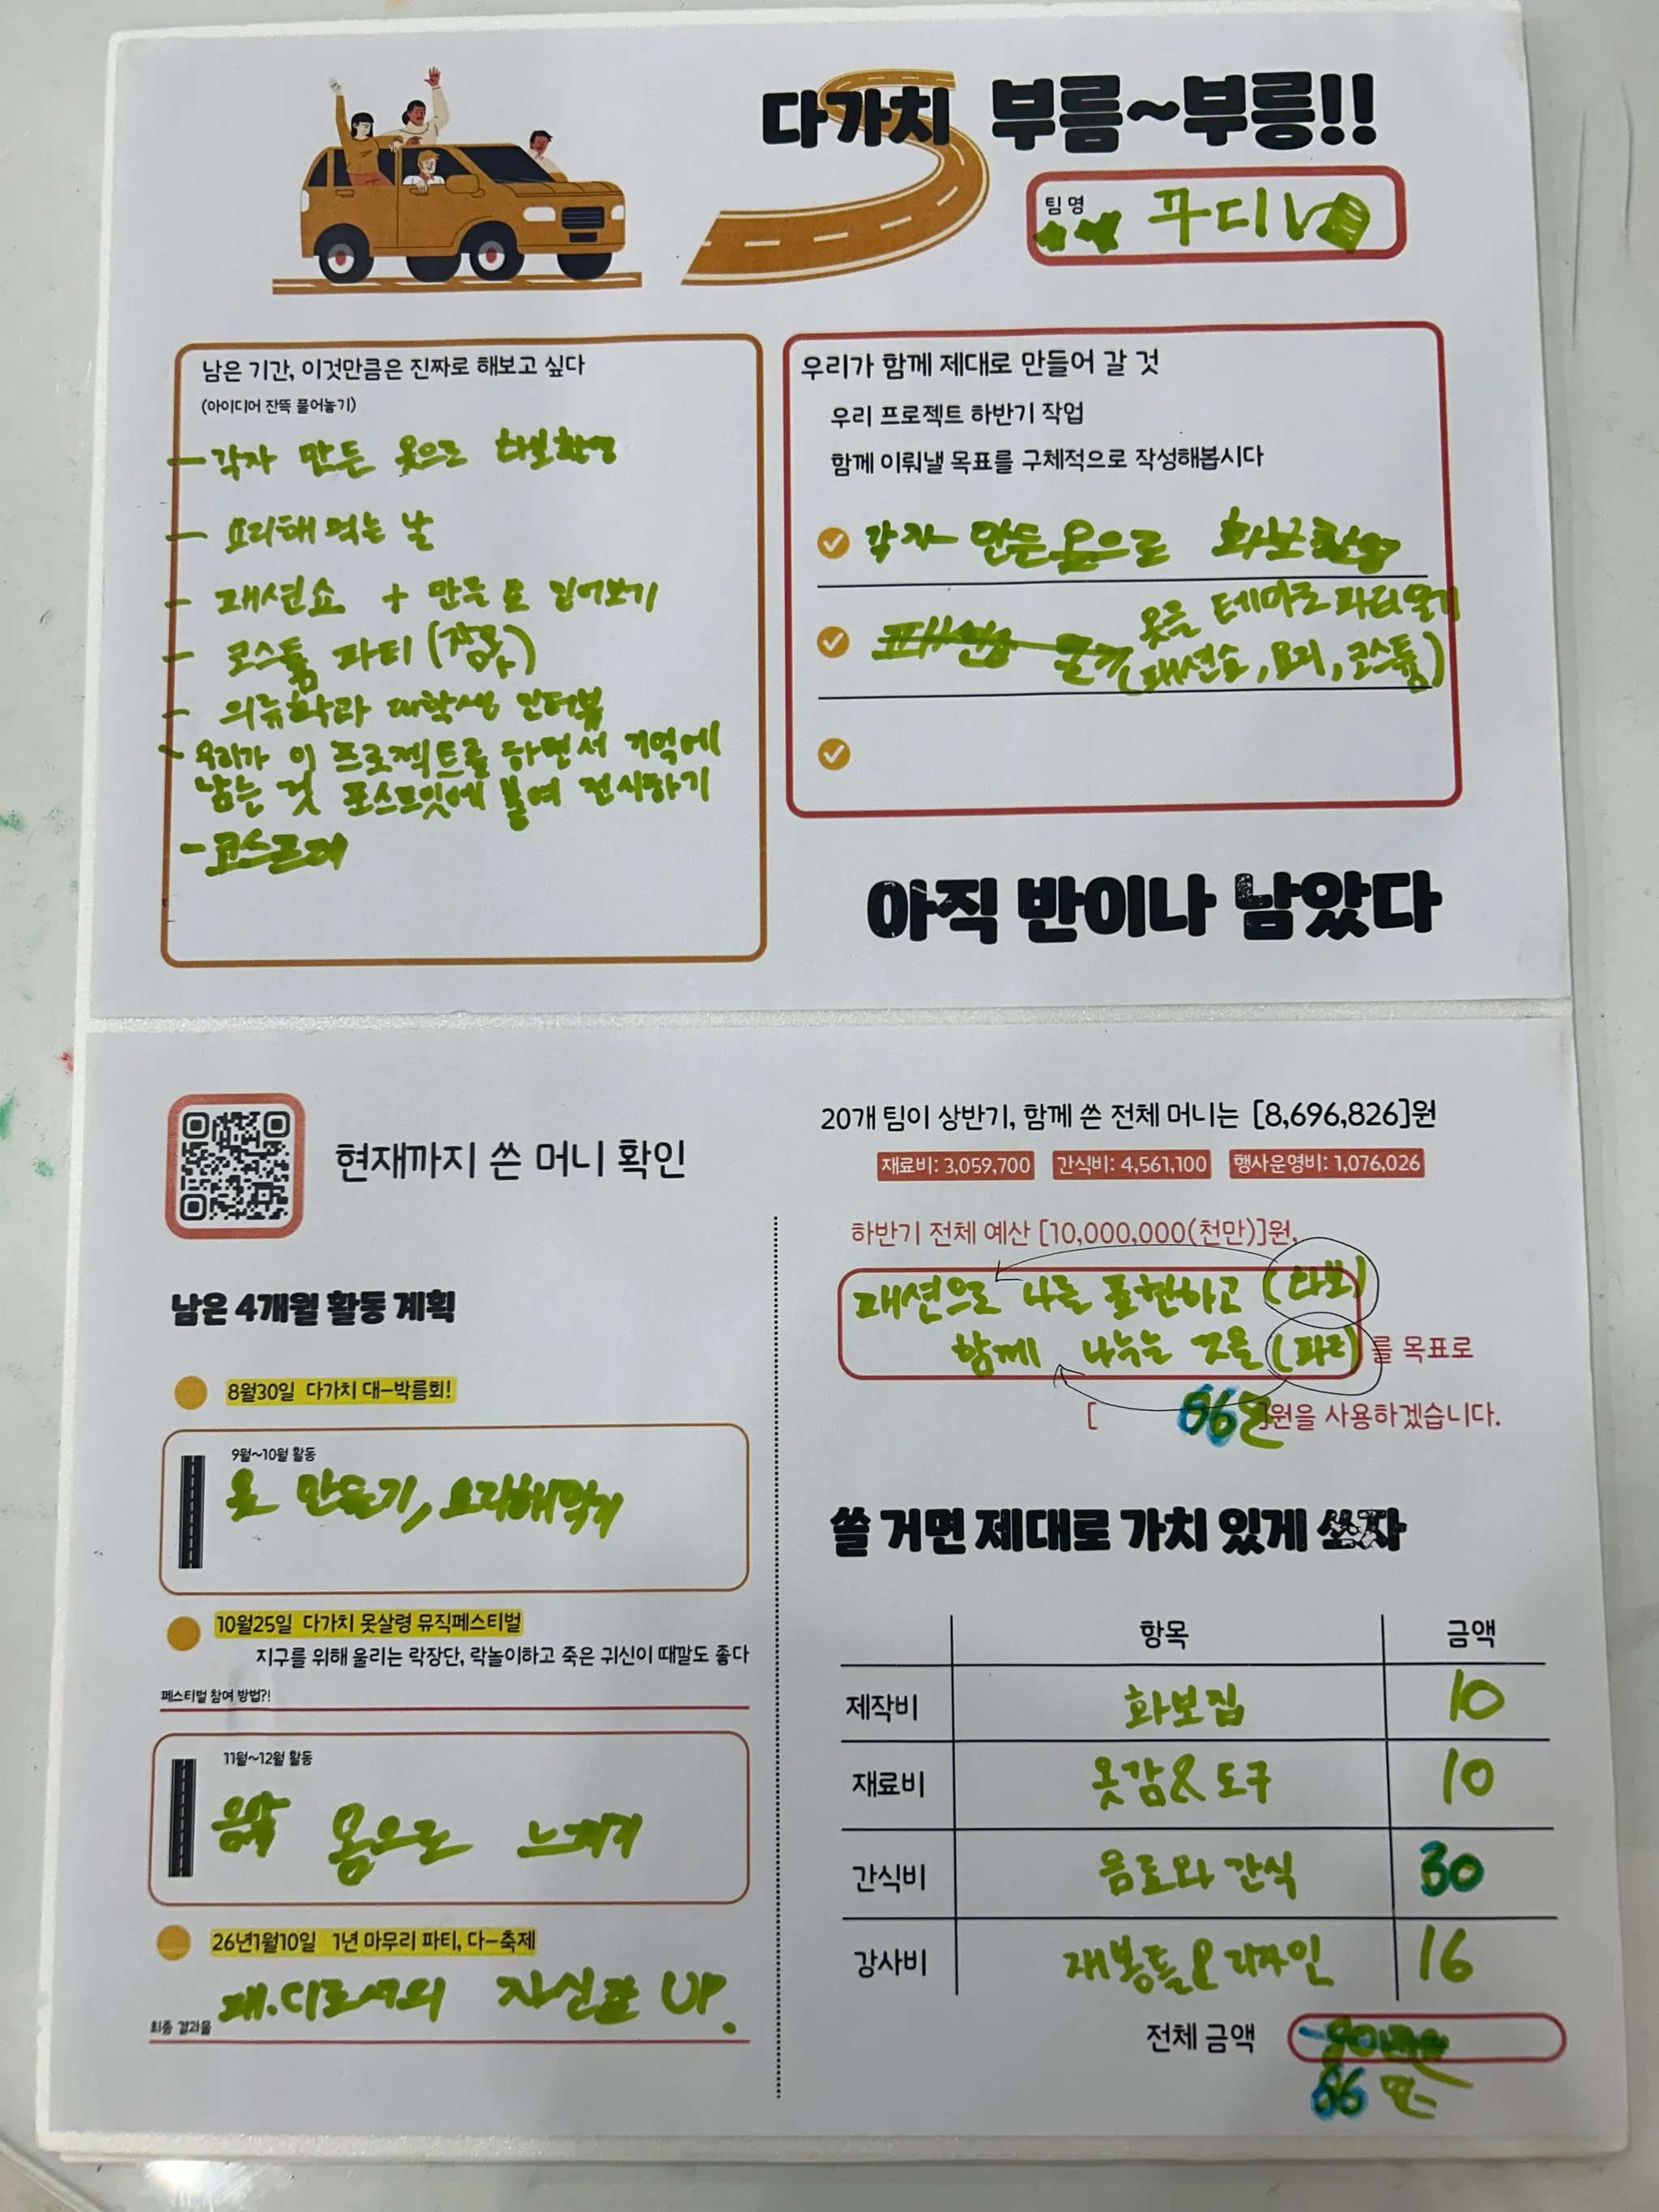 다가치 부름~부릉!!
팀 명
꾸디
남은 기간, 이것만큼은 진짜로 해보고 싶다
(아이디어 잔뜩 풀어놓기)
- 각자 만든 옷으로 화보촬영
- 요리해 먹는 날
- 패션쇼 + 만든 옷 입어보기
- 코스튬 파티 (잠옷)
- 의류학과 대학생 인터뷰
- 우리가 이 프로젝트를 하면서 기억에
남는 것 포스트잇에 붙여 전시하기
- 코스프레
우리가 함께 제대로 만들어 갈 것
우리 프로젝트 하반기 작업
함께 이뤄낼 목표를 구체적으로 작성해봅시다
각자 만든 옷으로 화보촬영
옷을 테마로 파티열기
(패션쇼, 요리, 코스튬)
아직 반이나 남았다
현재까지 쓴 머니 확인
20개 팀이 상반기, 함께 쓴 전체 머니는 [8,696,826]원
재료비: 3,059,700 간식비: 4,561,100 행사운영비: 1,076,026
하반기 전체 예산 [10,000,000(천만)]원,
패션으로 나를 표현하고 (화보)
함께 나누는 것을 (파티) 를 목표로
[ 66만 ]원을 사용하겠습니다.
남은 4개월 활동 계획
8월30일 다가치 대-박름회!
9월~10월 활동
옷 만들기, 요리해먹기
10월25일 다가치 못살령 뮤직페스티벌
지구를 위해 울리는 락장단, 락놀이하고 죽은 귀신이 때깔도 좋다
페스티벌 참여 방법?!
11월~12월 활동
음악 몸으로 느끼기
26년1월10일 1년 마무리 파티, 다-축제
최종 결과물 패.디로서의 자신감 UP.
쓸 거면 제대로 가치 있게 쓰자
항목 금액
제작비 화보집 10
재료비 옷감 & 도구 10
간식비 음료와 간식 30
강사비 재봉틀 & 디자인 16
전체 금액
66만